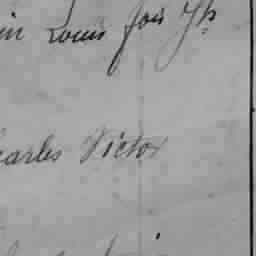 in Louis fois Jh
harles Victor